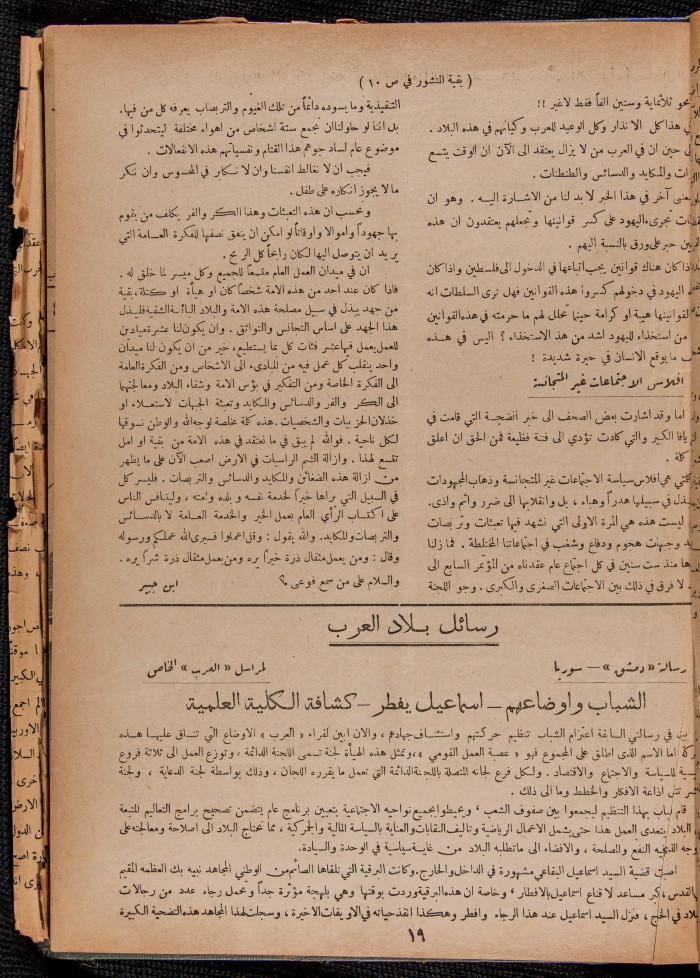 ( بقية المنشور في ص ١٠ )
نحو ثلاثماية وستين الفاً فقط لاغير !!
في هذا كل الانذار وكل الوعيد للعرب وكيانهم في هذه البلاد .
في حين ان في العرب من لا يزال يعتقد الى الآن ان الوقت يتسع
والمكايد والدسائس والطنطنات .
معنى آخر في هذا الخبر لا بد لنا من الاشارة اليه . وهو ان
تجرىء اليهود على كسر قوانينها وتجعلهم يعتقدون ان هذه
حبر على ورق بالنسبة اليهم .
اذا كان هناك قوانين يجب اتباعها في الدخول الى فلسطين واذا كان
اليهود في دخولهم كسروا هذه القوانين فهل ترى السلطات انه
لقوانينها هيبة او كرامة حينما تحلل لهم ما حرمته في هذه القوانين
من استخذاء لليهود اشد من هذا الاستخذاء ؟ اليس في هذه
ما يوقع الانسان في حيرة شديدة !
افلاس الاجتماعات غير المتجانسة
اما وقد اشارت بعض الصحف الى خبر الضجة التي قامت في
يافا الكبير والتي كادت تؤدي الى فتنة فظيعة فمن الحق ان اعلق
كلمة .
كلمتي هي افلاس سياسة الاجتماعات غير المتجانسة وذهاب المجهودات
تبذل في سبيلها هدراً وهباء ، بل وانقلابها الى ضرر واثم واذى .
ليست هذه هي المرة الاولى التي نشهد فيها تعبئات وتربصات
وجبهات هجوم ودفاع وشغب في اجتماعاتنا المختلطة . فما زلنا
منذ ست سنين في كل اجتماع عام عقدناه من المؤتمر السابع الى
لا فرق في ذلك بين الاجتماعات الصغرى والكبرى . وجو اللجنة
التنفيذية وما يسوده دائماً من تلك الغيوم والتربصات يعرفه كل من فيها.
بل اننا لو حاولنا ان نجمع ستة اشخاص من اهواء مختلفة ليتحدثوا في
موضوع عام لساد جوهم هذا القتام ونفسياتهم هذه الانفعالات .
فيجب ان لا نغالط انفسنا وان لا نكابر في المحسوس وان ننكر
ما لا يجوز انكاره على طفل .
ونحسب ان هذه التعبئات وهذا الكر والفر يكلف من يقوم
بها جهوداً واموالا واوقاتاً لو امكن ان ينفق نصفها للفكرة العامة التي
يريد ان يتوصل اليها لكان رابحاً كل الربح .
ان في ميدان العمل العام متسعاً للجميع وكل ميسر لما خلق له .
فاذا كان عند احد من هذه الامة شخصاً كان او هيأة او كتلة، بقية
من جهد يبذل في سبيل مصلحة هذه الامة والبلاد البائسة الشقية فليبذل
هذا الجهد على اساس التجانس والتوافق . وان يكون لنا عشرة ميادين
للعمل يعمل فيها عشر فئات كل بما يستطيع، خير من ان يكون لنا ميدان
واحد ينقلب كل عمل فيه من المبادىء الى الاشخاص ومن الفكرة العامة
الى الفكرة الخاصة ومن التفكير في بؤس الامة وشقاء البلاد ومعالجتها
الى الكر والفر والدسائس والمكايد وتعبئة الجبهات لاستعلاء او
خذلان الحزبيات والشخصيات. هذه كلمة مخلصة لوجه الله والوطن نسوقها
لكل ناحية . فوالله لم يبق في ما نعتقد في هذه الامة من بقية او امل
تتسع لهذا . وازالة الشم الراسيات في الارض اصعب الآن على ما يظهر
من ازالة هذه الضغائن والمكايد والدسائس والتربصات . فليسر كل
في السبيل التي يراها خيراً لخدمة نفسه وبلده وامته ، وليتنافس الناس
على اكتساب الرأي العام بعمل الخير والخدمة العامة لا بالدسائس
والتربصات والمكايد. والله يقول : وقل اعملوا فسيرى الله عملكم ورسوله
وقال : ومن يعمل مثقال ذرة خيراً يره ومن يعمل مثقال ذرة شراً يره .
والسلام على من سمع فوعى م؟ ابن جبير
رسائل بلاد العرب
رسالة « دمشق » — سوريا
لمراسل « العرب » الخاص
الشباب واوضاعهم – اسماعيل يفطر – كشافة الكلية العلمية
في رسالتي السابقة اعتزام الشباب تنظيم حركتهم واستئناف جهادهم ، والان ابين لقراء « العرب » الاوضاع التي تنساق عليها هذه
اما الاسم الذي اطلق على المجموع فهو « عصبة العمل القومي » ، وتمثل هذه الهيأة لجنة تسمى اللجنة الدائمة ، وتوزع العمل الى ثلاثة فروع
للسياسة والاجتماع والاقتصاد . ولكل فرع لجانه المتصلة باللجنة الدائمة التي تعمل ما يقرره اللجان ، وذلك بواسطة لجنة الدعاية ، ولجنة
اذاعة الافكار والخطط وما الى ذلك .
قام الشباب بهذا التنظيم ليجمعوا بين صفوف الشعب ' ويحيطوا بجميع نواحيه الاجتماعية بتعيين برنامج عام يتضمن تصحيح برامج التعاليم المتبعة
البلاد يتعدى العمل هذا حتى يشمل الاعمال الرياضية وتاليف النقابات والعناية بالسياسة المالية والجمركية ، مما تحتاج البلاد الى اصلاحة ومعالجته على
وجه النفع والمصلحة ، والافضاء الى ما تطلبه البلاد من غاية سياسية في الوحدة والسيادة.
قضية السيد اسماعيل البقاعي مشهورة في الداخل والخارج. وكانت البرقية التي تلقاها الصائم من الوطني المجاهد نبيه بك العظمه المقيم
القدس، اكبر مساعد لاقناع اسماعيل بالافطار ' وخاصة ان هذه البرقية وردت بوقتها وهي بلهجة مؤثرة جداً وتحمل رجاء عدد من رجالات
البلاد في الخارج ، فنزل السيد اسماعيل عند هذا الرجاء وافطر وهكذا انقذ حياته في الاويقات الاخيرة ، وسجلت لهذا المجاهد هذه التضحية الكبيرة
١٩